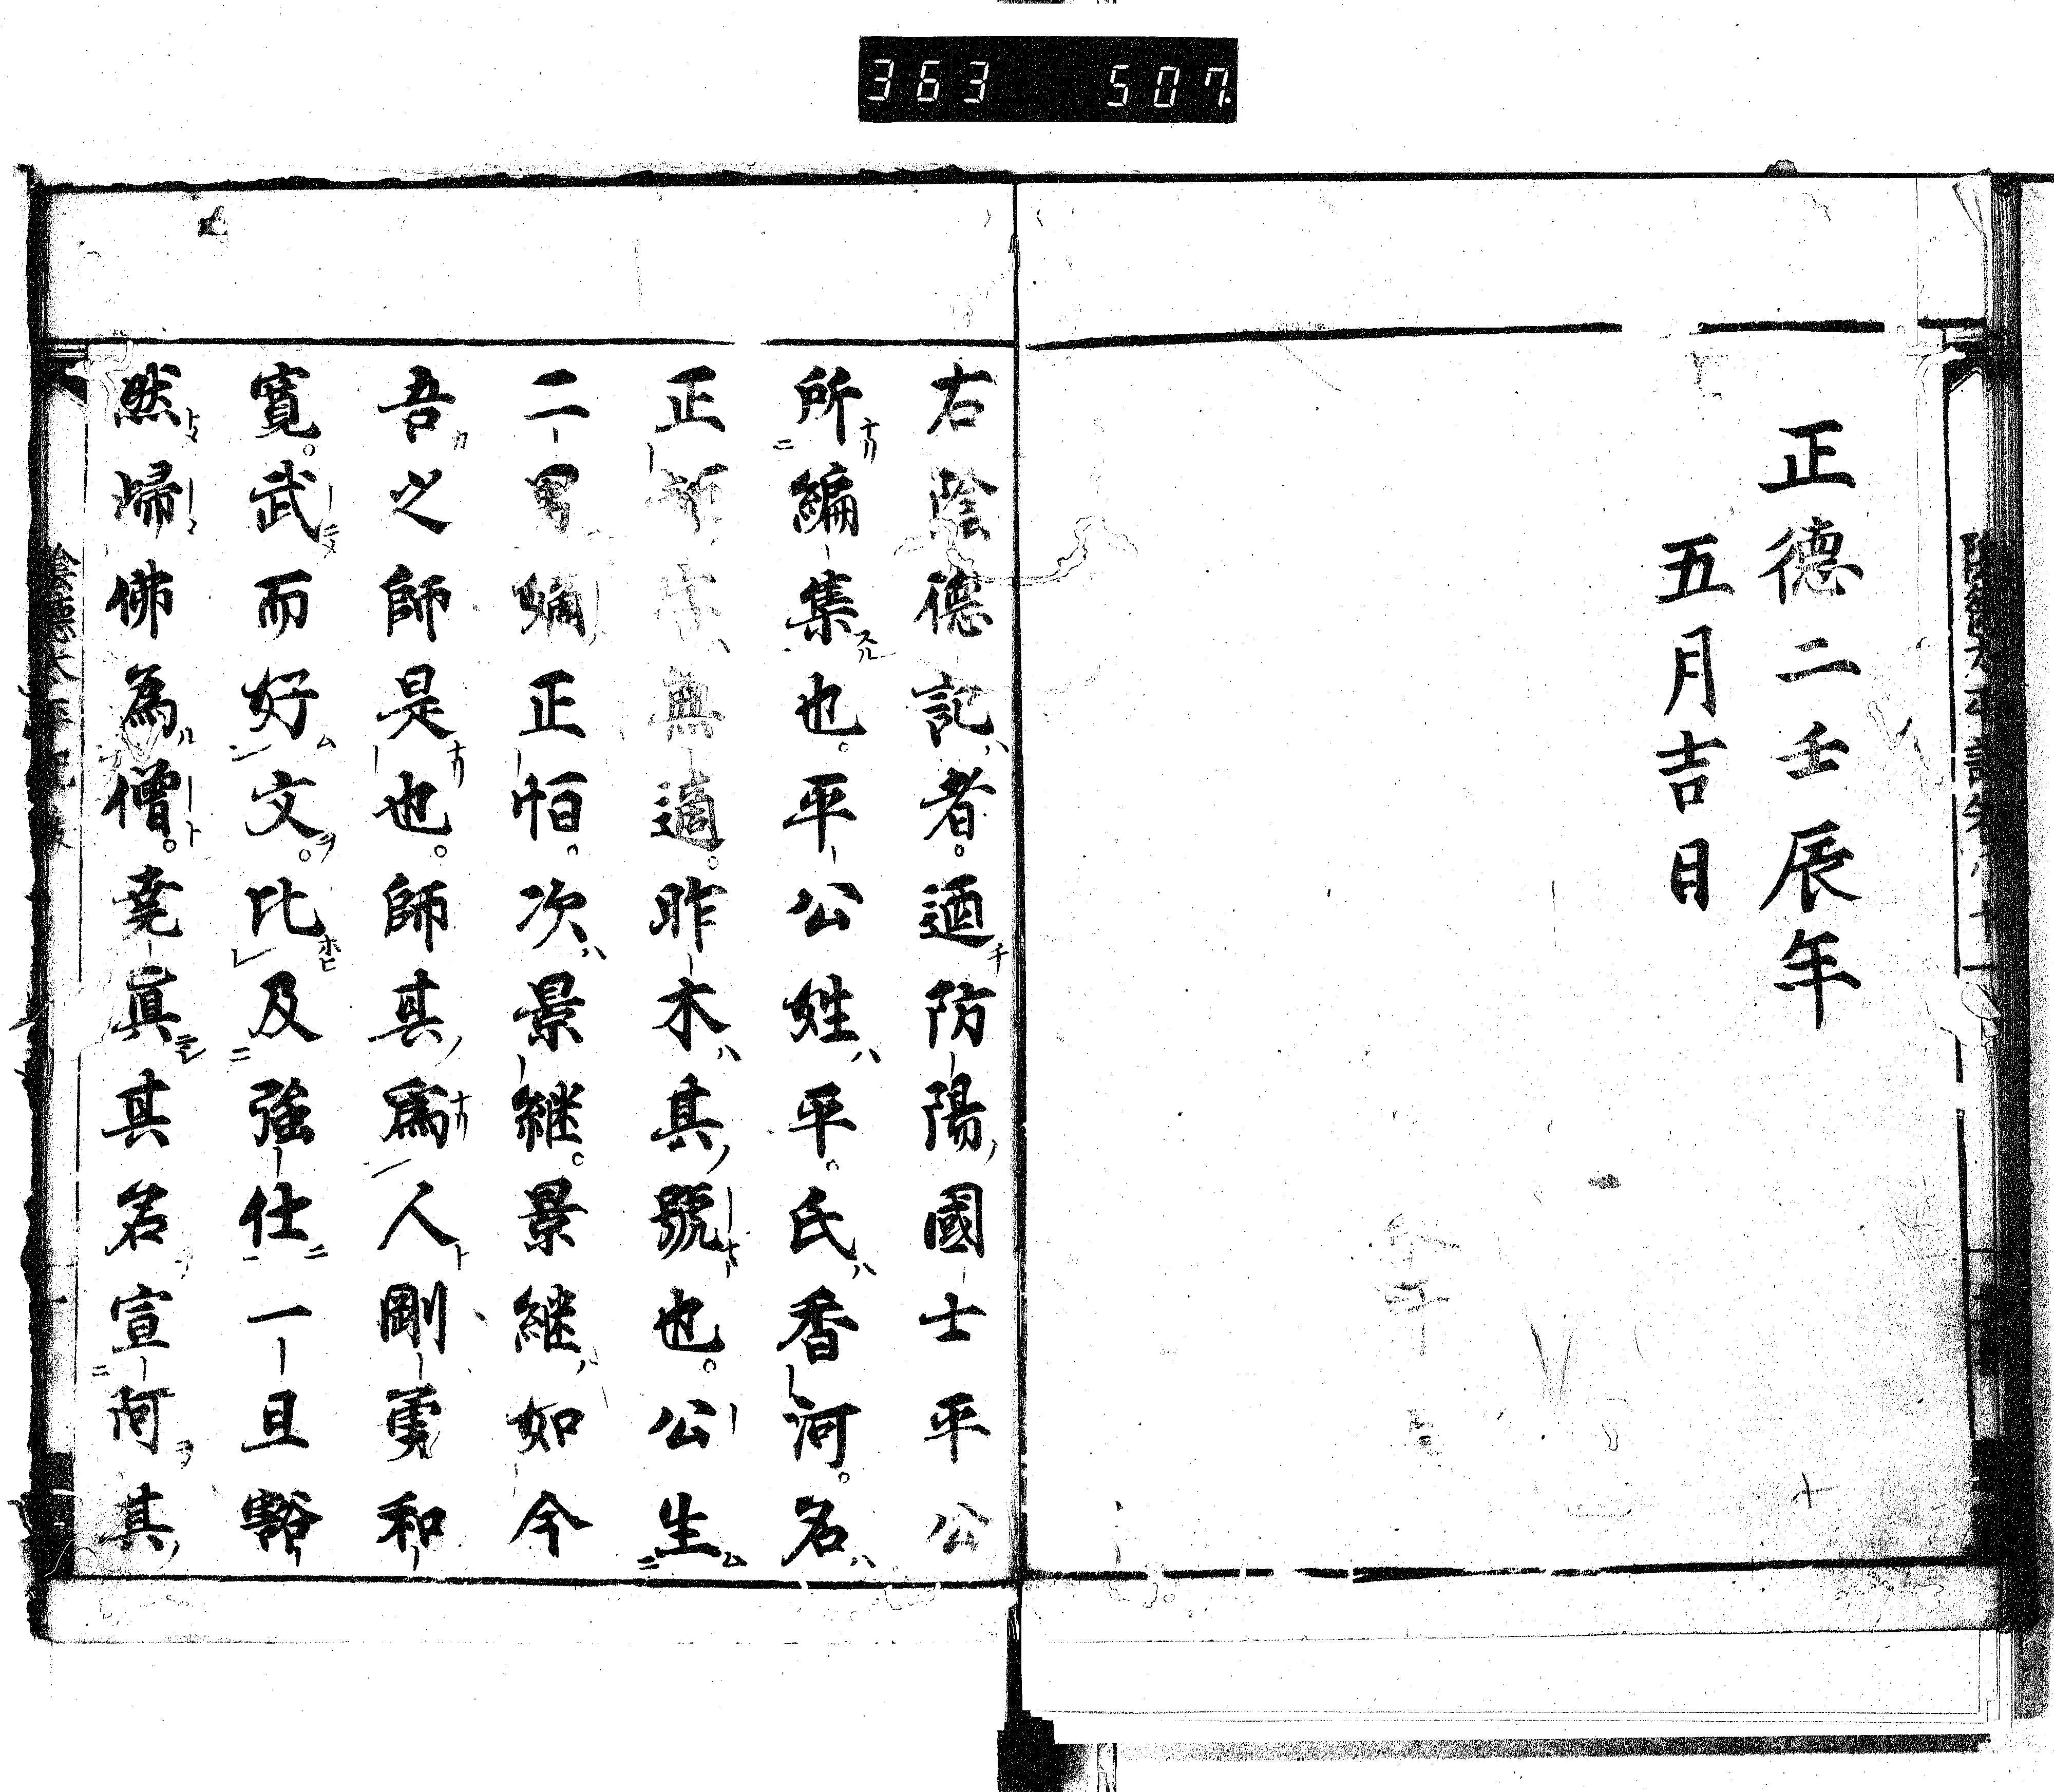 363 507
正德二壬辰年
五月吉日
右陰德記者。迺防陽國士平公
所編集也。平公姓平。氏香河。名
正矩 無適。昨木其號也。公生
二男嫡正恒。次景継。景継如今
吾之師是也。師其為人剛勇和
寛。武而好文。比及強仕一旦豁
然帰佛為僧。堯眞其名宣阿其